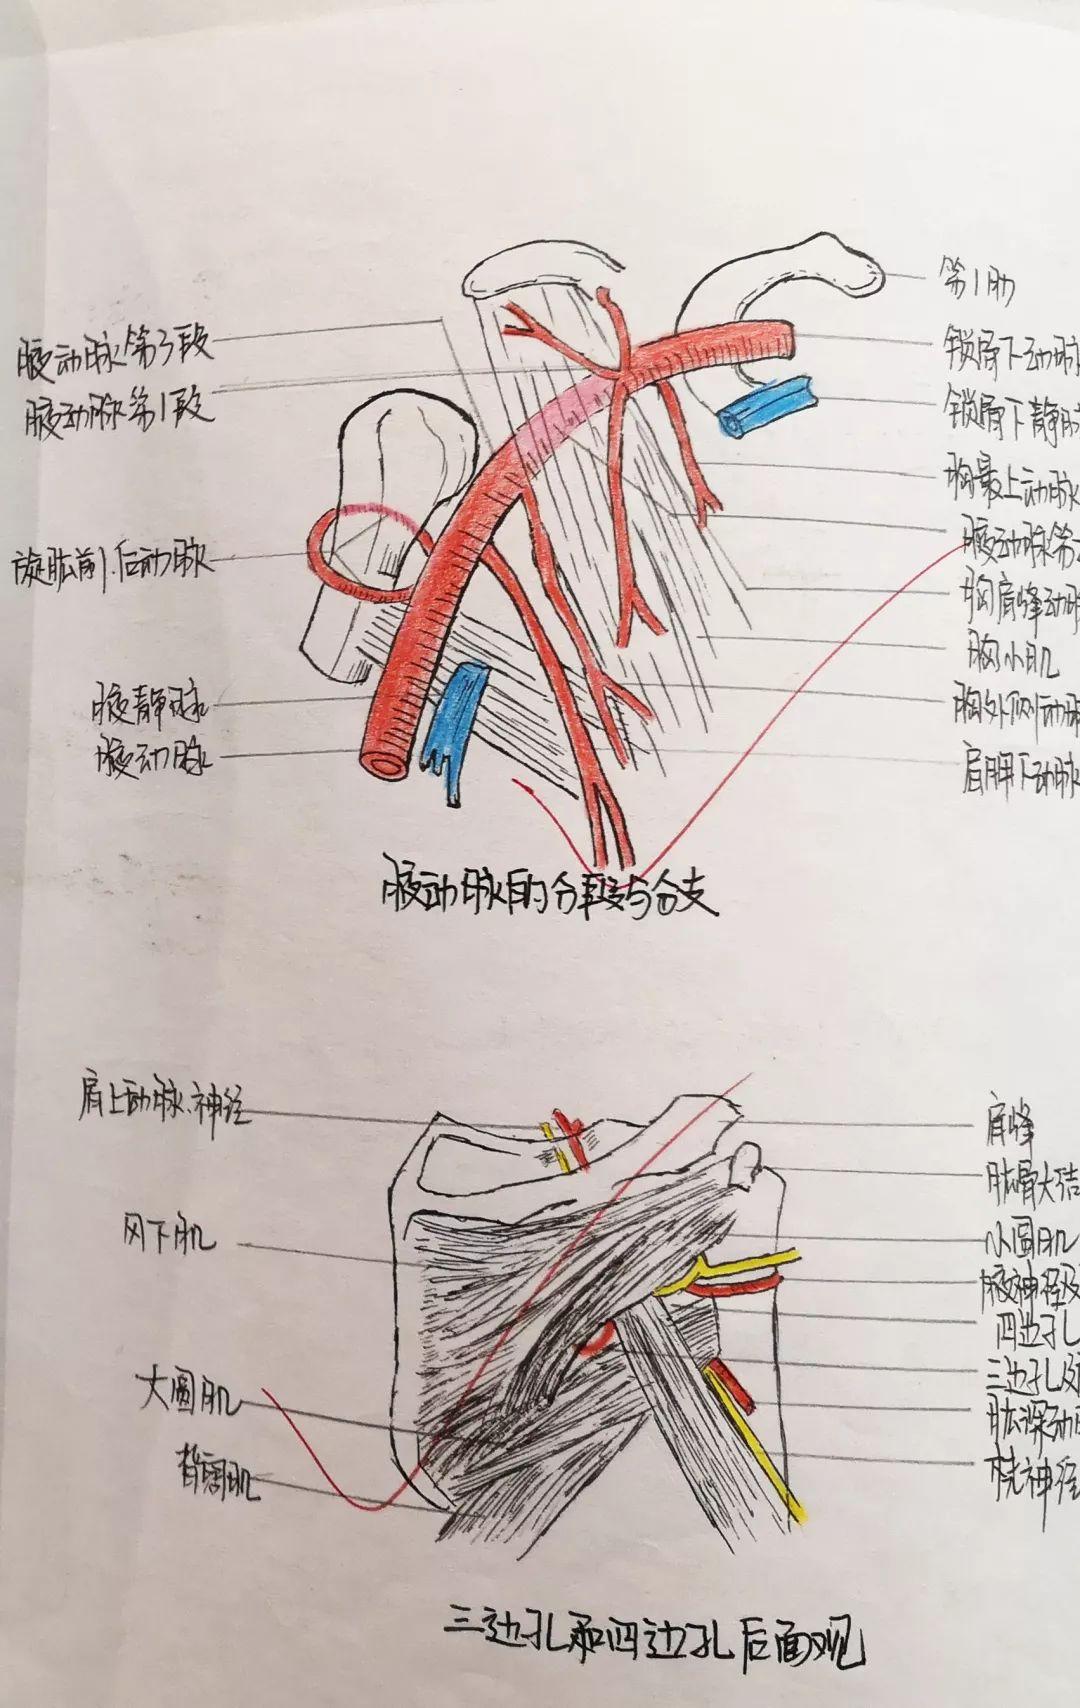 腋动脉第3段
腋动脉第1段
旋肱前、后动脉
腋静脉
腋动脉
第1肋
锁骨下动脉
锁骨下静脉
胸最上动脉
腋动脉第
胸肩峰动脉
胸小肌
胸外侧动脉
肩胛下动脉
腋动脉的分段与分支
肩上动脉、神经
冈下肌
大圆肌
背阔肌
肩峰
肱骨大结
小圆肌
腋神经及
四边孔
三边孔及
肱深动
桡神经
三边孔和四边孔后面观